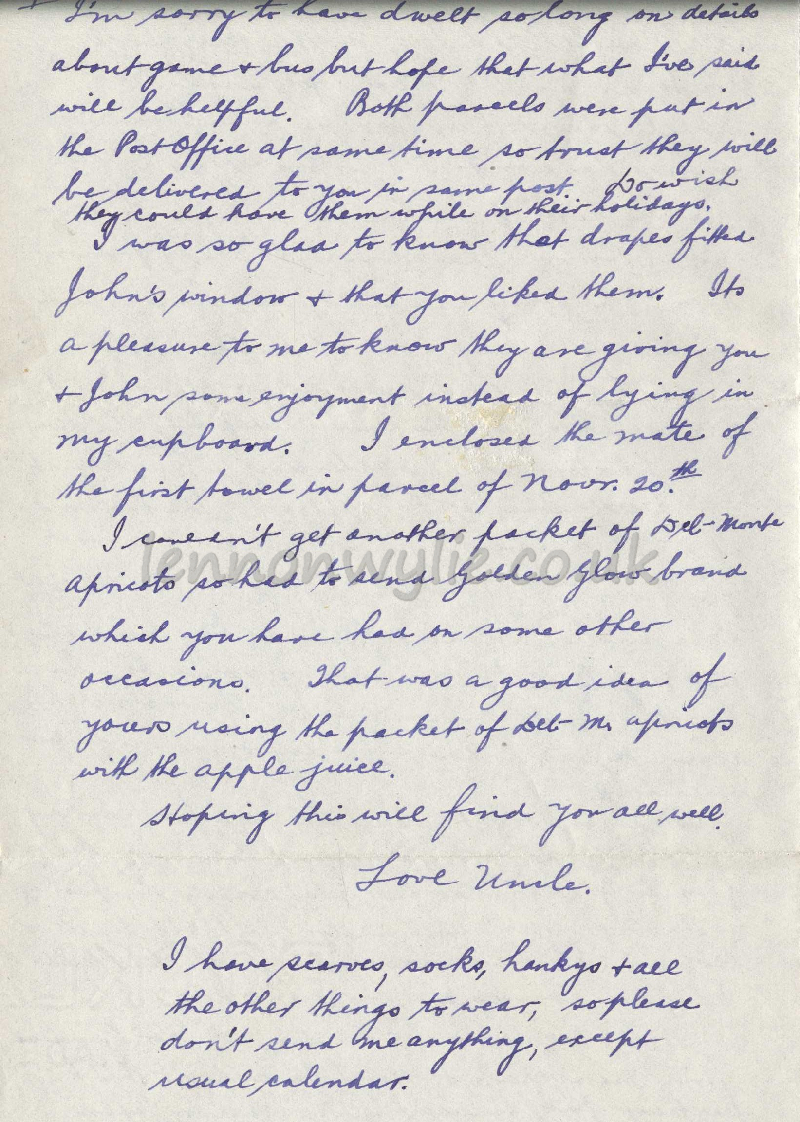 I'm sorry to have dwelt so long on details
about game & bus but hope that what I've said
will be helpful. Both parcels were put in
the Post Office at same time so trust they will
be delivered to you in same post. Do wish
they could have them while on their holidays.
I was so glad to know that drapes fitted
John's window & that you liked them. Its
a pleasure to me to know they are giving you
& John some enjoyment instead of lying in
my cupboard. I enclosed the mate of
the first towel in parcel of Novr. 20.th
I couldn't get another packet of Del-Monte
apricots so had to send Golden Glow brand
which you have had on some other
occasions. That was a good idea of
yours using the packet of Del-M. apricots
with the apple juice.
Hoping this will find you all well.
Love Uncle.
I have scarves, socks, hankys & all
the other things to wear, so please
don't send me anything, except
usual calendar.
lennonwylie.co.uk